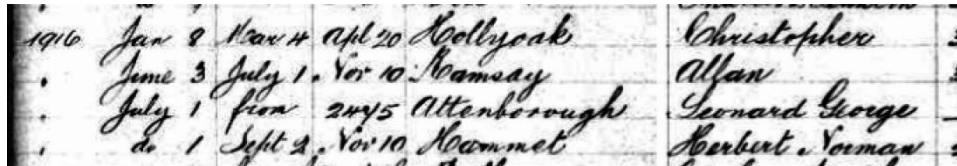 1916 Jan 8 Mar 4 Apl 20 Hollyoak Christopher
" June 3 July 1 . Nov 10 Ramsay Allan
" July 1 from 2445 Attenborough Leonard George
" do 1 Sept 2 . Nov 10 Hammet Herbert Norman